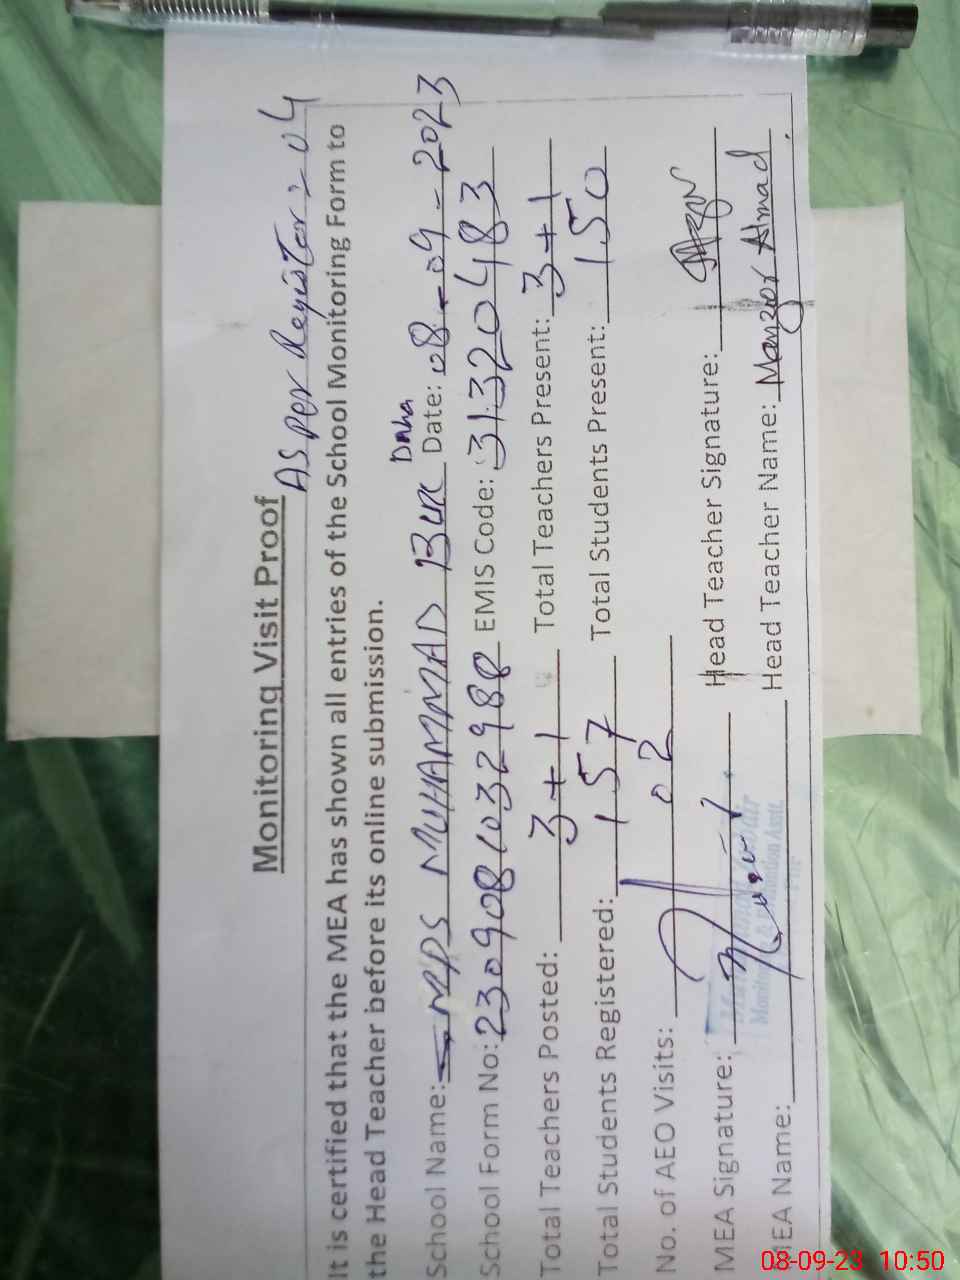 Monitoring Visit Proof
As Per Register > 04
It is certified that the MEA has shown all entries of the School Monitoring Form to
the Head Teacher before its online submission.
School Name: MPS MUHAMMAD Daha Date: 08-09-2023
School Form No: 23090810329 88 EMIS Code: 31320483
Total Teachers Posted: 3+1 Total Teachers Present: 3+1
Total Students Registered: 157 Total Students Present: 150
No. of AEO Visits: 02
MEA Signature: Head Teacher Signature:
MEA Name: Head Teacher Name: Manzor Ahmad
08-09-23 10:50